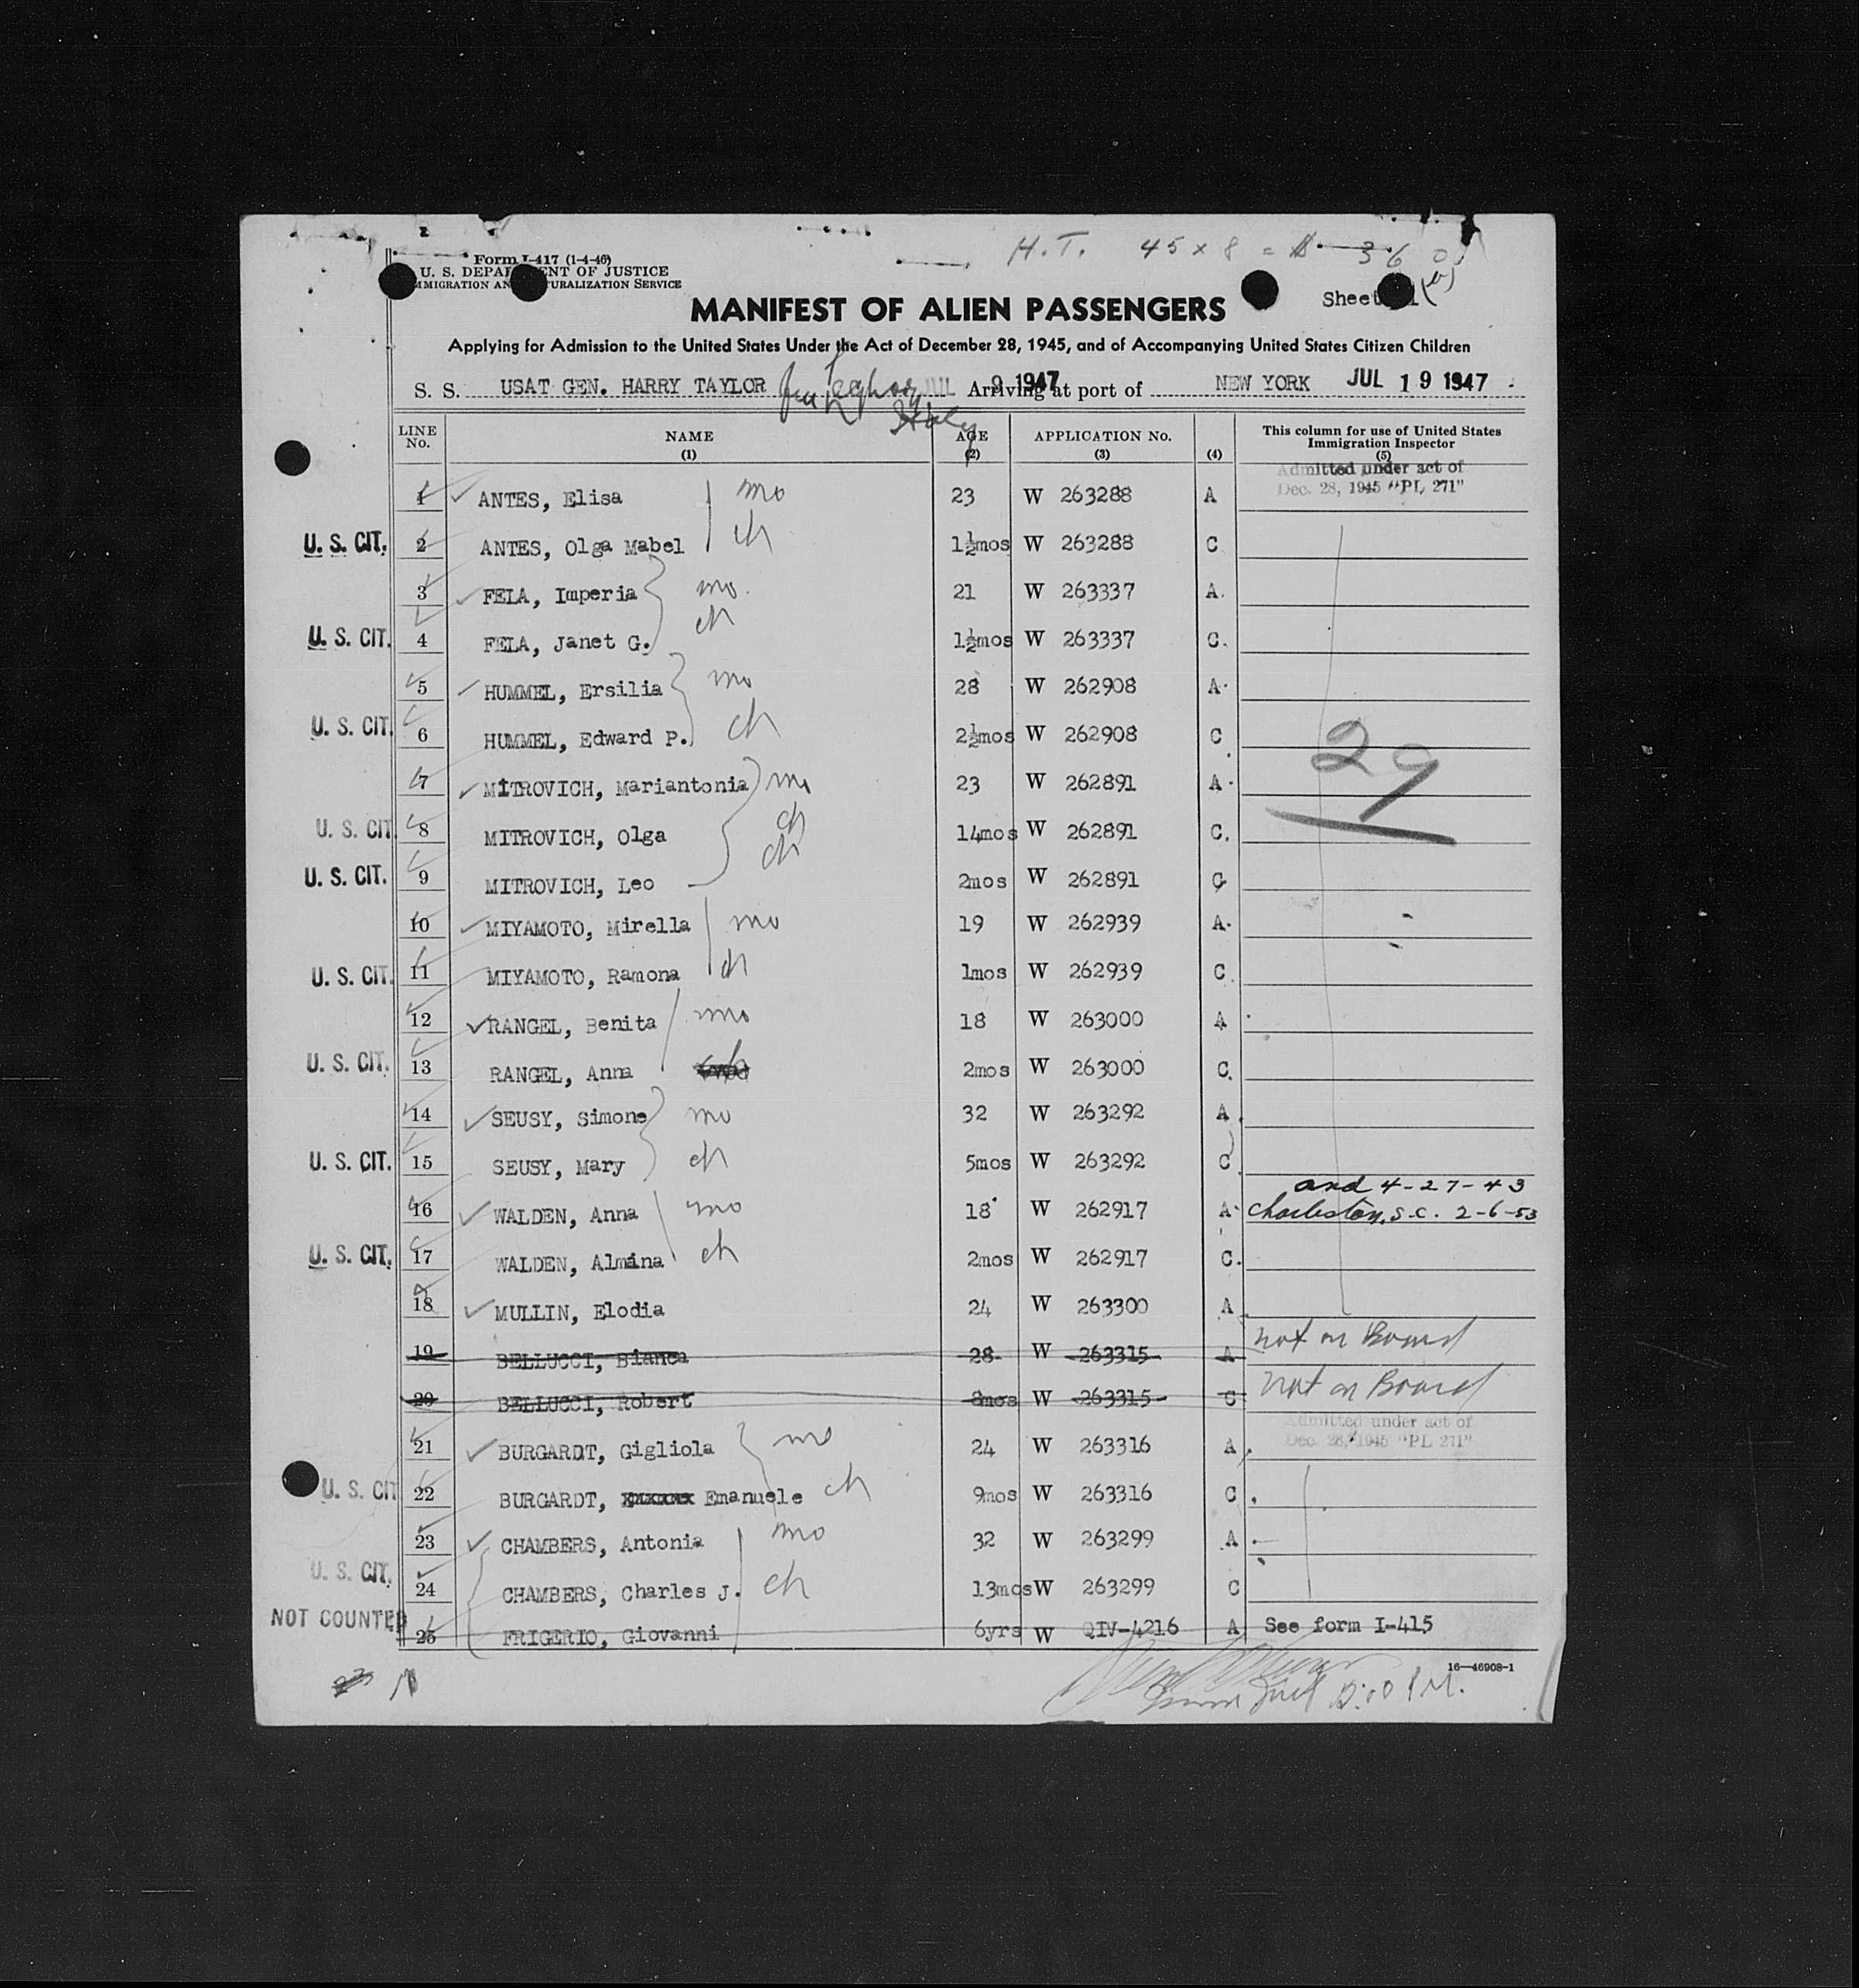 H.T. 45 x 8 = $ 360
Form I-417 (1-4-46)
U. S. DEPA ENT OF JUSTICE
MMIGRATION AN TURALIZATION SERVICE
Sheet 1
MANIFEST OF ALIEN PASSENGERS
Applying for Admission to the United States Under the Act of December 28, 1945, and of Accompanying United States Citizen Children
S. S. USAT GEN. HARRY TAYLOR from Leghorn JUL 9 1947 Arriving at port of NEW YORK JUL 19 1947
Italy
LINE No. NAME (1) AGE (2) APPLICATION No. (3) (4) This column for use of United States Immigration Inspector (5)
Admitted under act of
Dec. 28, 1945 "PL 271"
1 ANTES, Elisa mo 23 W 263288 A
U. S. CIT. 2 ANTES, Olga Mabel ch 1½mos W 263288 C
3 FELA, Imperia mo. 21 W 263337 A.
U. S. CIT. 4 FELA, Janet G. ch 1½mos W 263337 C.
5 HUMMEL, Ersilia mo 28 W 262908 A
U. S. CIT. 6 HUMMEL, Edward P. ch 2½mos W 262908 C
29
7 MITROVICH, Mariantonia mo 23 W 262891 A
U. S. CIT 8 MITROVICH, Olga ch 14mos W 262891 C.
U. S. CIT. 9 MITROVICH, Leo ch 2mos W 262891 C
10 MIYAMOTO, Mirella mo 19 W 262939 A
U. S. CIT. 11 MIYAMOTO, Ramona ch 1mos W 262939 C
12 RANGEL, Benita mo 18 W 263000 A
U. S. CIT. 13 RANGEL, Anna 2mos W 263000 C.
14 SEUSY, Simone mo 32 W 263292 A
U. S. CIT. 15 SEUSY, Mary ch 5mos W 263292 C
and 4-27-43
16 WALDEN, Anna mo 18 W 262917 A Charleston, S.C. 2-6-53
U. S. CIT. 17 WALDEN, Almina ch 2mos W 262917 C.
18 MULLIN, Elodia 24 W 263300 A
19 BELLUCCI, Bianca 28 W 263315 A not on Board
20 BELLUCCI, Robert 8mos W 263315 C not on Board
Admitted under act of
Dec. 28, 1945 "PL 271"
21 BURGARDT, Gigliola mo 24 W 263316 A
U. S. CIT 22 BURGARDT, Emanuele ch 9mos W 263316 C
23 CHAMBERS, Antonia mo 32 W 263299 A
U. S. CIT. 24 CHAMBERS, Charles J. ch 13mos W 263299 C
NOT COUNTED 25 FRIGERIO, Giovanni 6yrs W QIV-4216 A See form I-415
16—46908-1